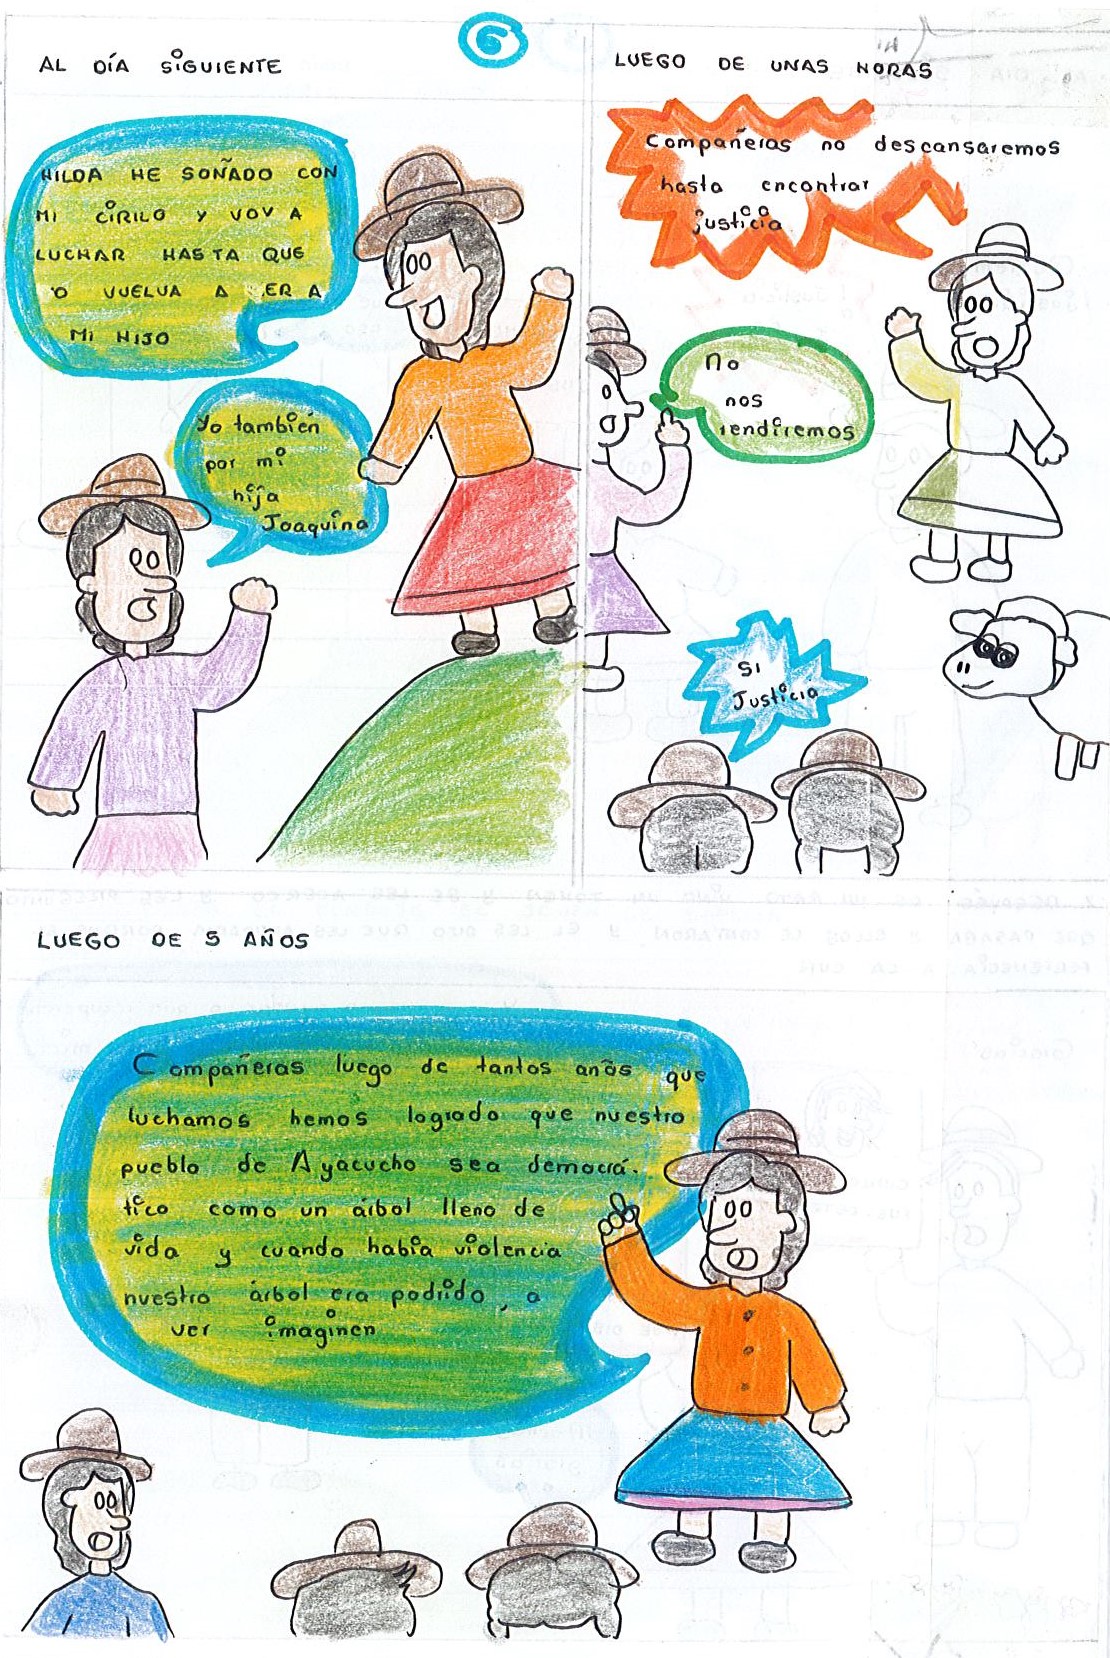 6
AL DÍA SIGUIENTE
HILDA HE SOÑADO CON
MI CIRILO Y VOY A
LUCHAR HASTA QUE
VUELVA A
MI HIJO
Yo también
por mi
hija
Joaquina
LUEGO DE UNAS HORAS
Compañeras no descansaremos
hasta encontrar
justicia
No
nos
rendiremos
SI
Justicia
LUEGO DE 5 AÑOS
Compañeras luego de tantos años que
luchamos hemos logrado que nuestro
pueblo de Ayacucho sea democrá-
tico como un árbol lleno de
vida y cuando había violencia
nuestro árbol era podrido, a
ver imaginen